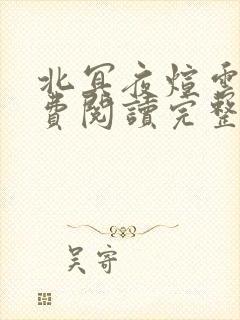 北冥夜煊雲
費閱讀完整
吴寄